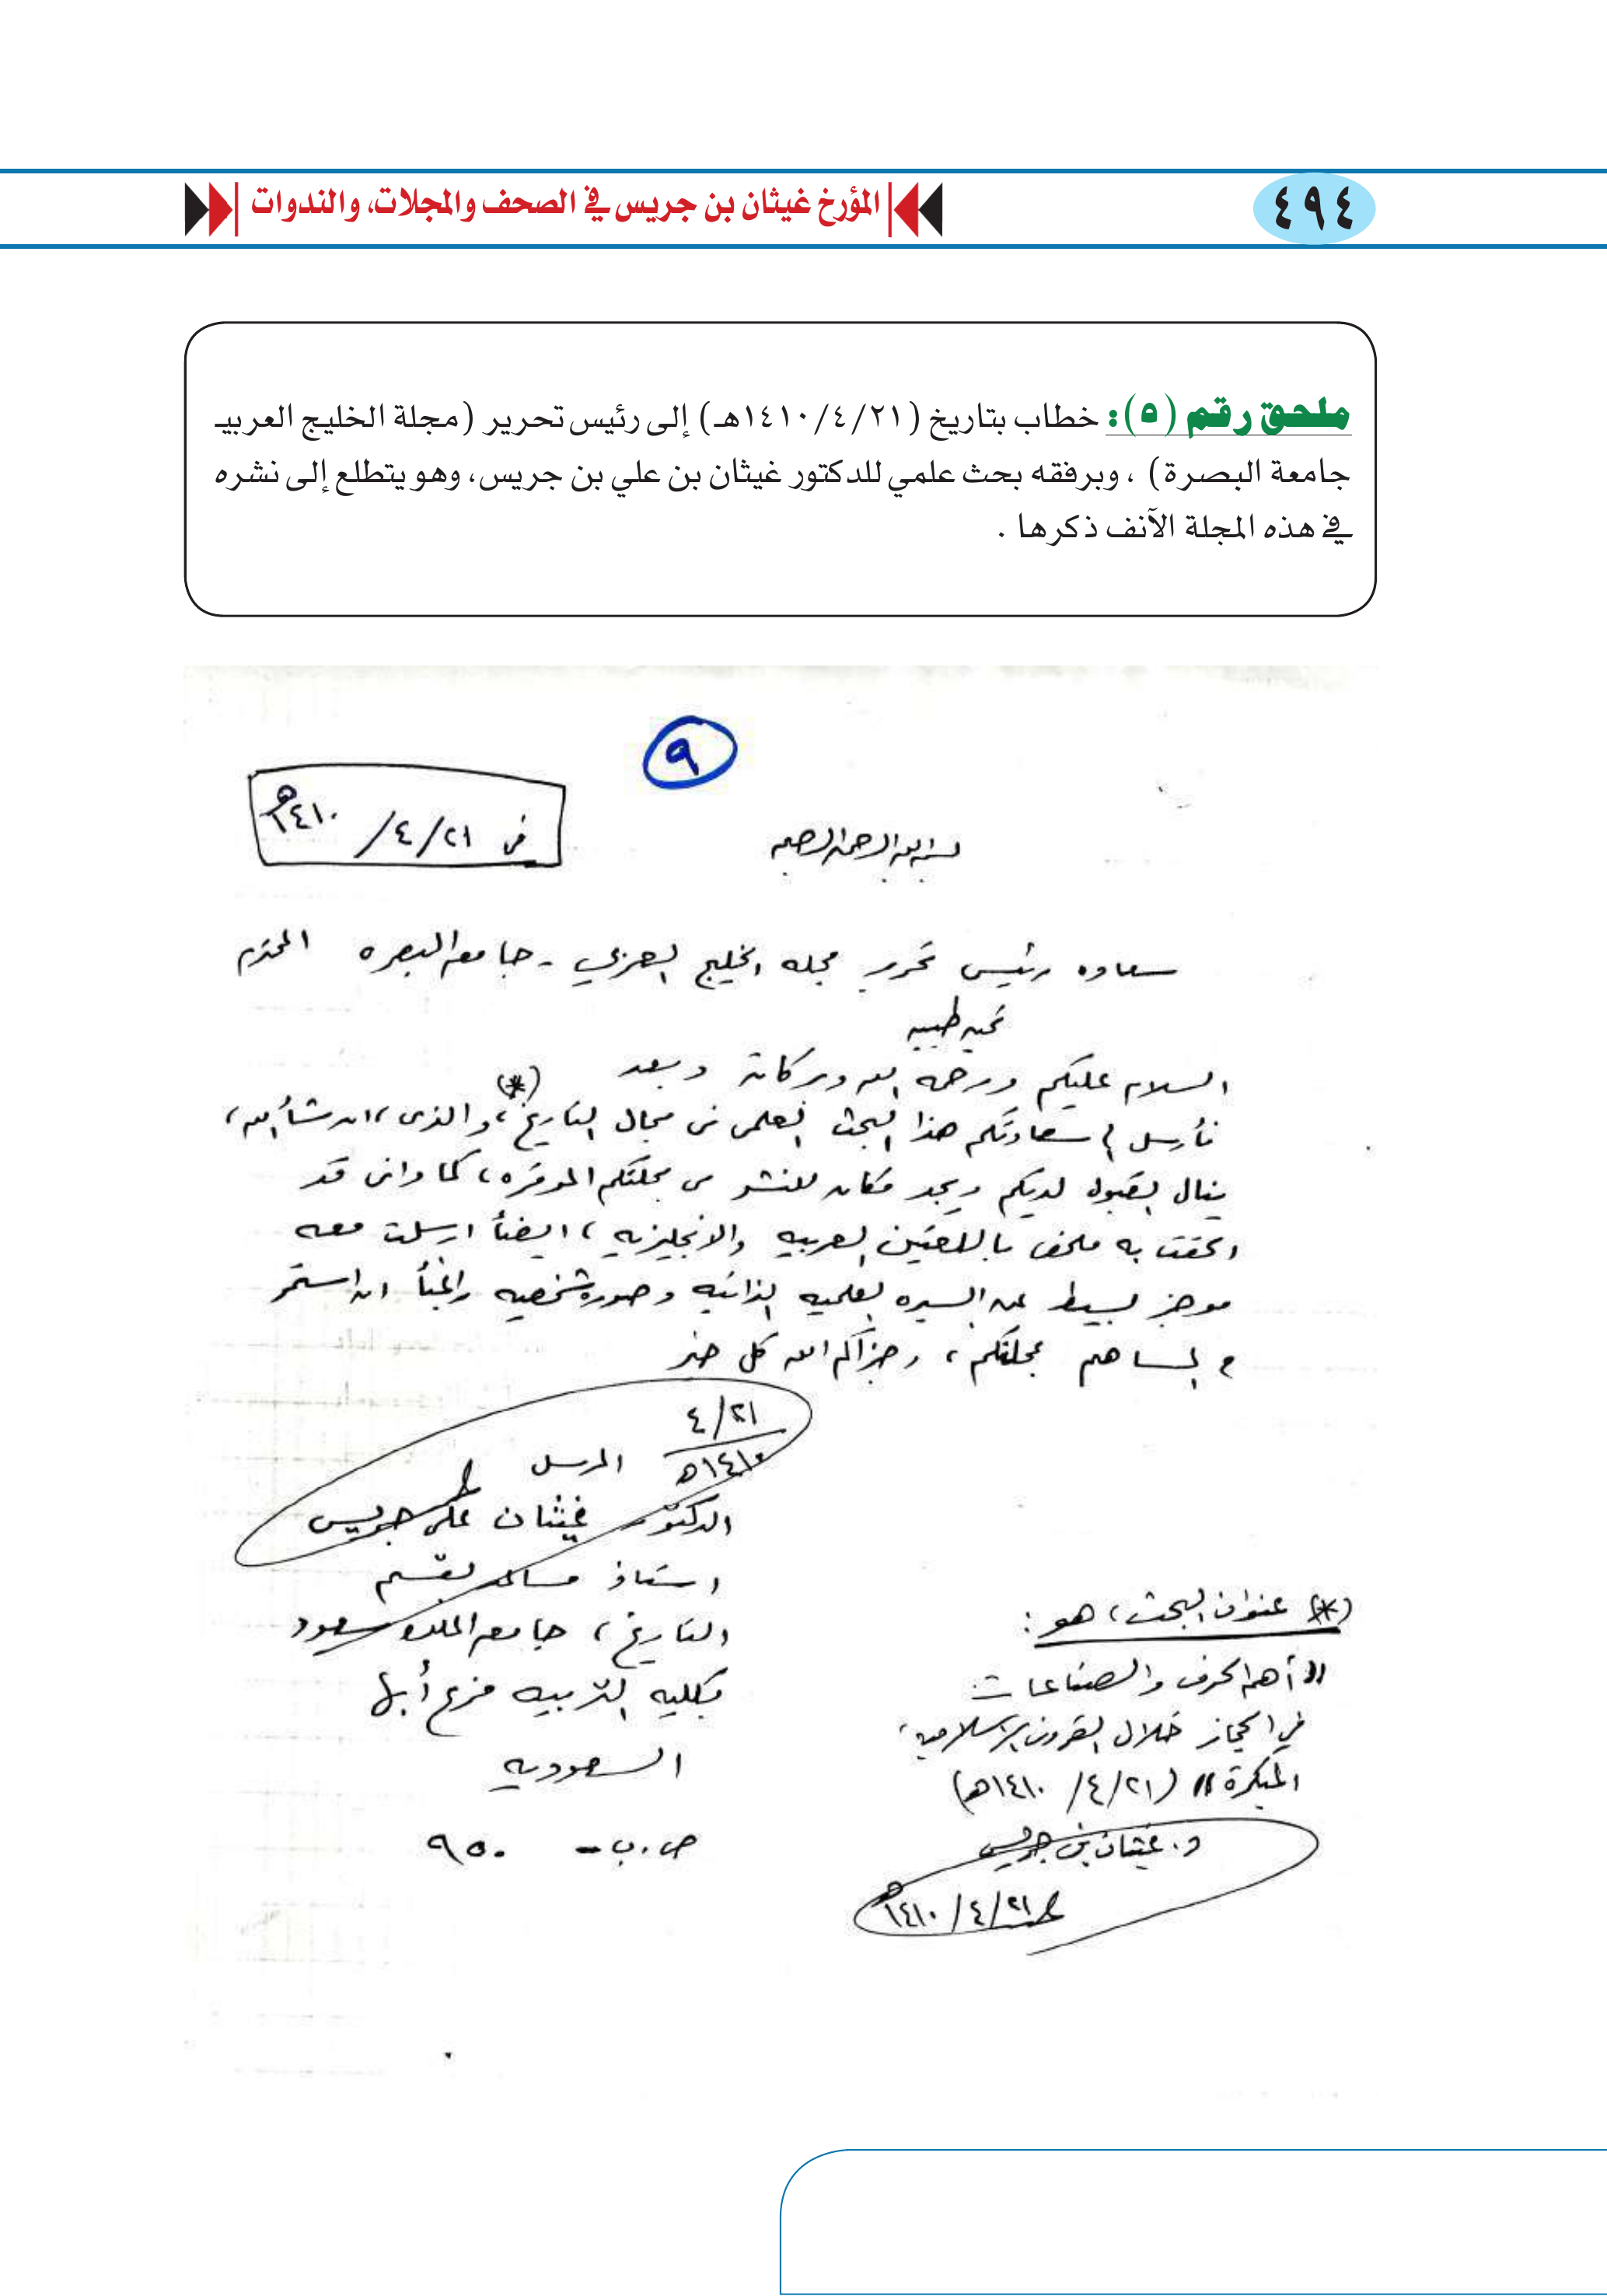 ٤٩٤
المؤرخ غيثان بن جريس في الصحف والمجلات، والندوات
ملحق رقم (٥): خطاب بتاريخ (١٤١٠/٤/٢١هـ) إلى رئيس تحرير (مجلة الخليج العربيـ
جامعة البصرة) ، وبرفقه بحث علمي للدكتور غيثان بن علي بن جريس، وهو يتطلع إلى نشره
في هذه المجلة الآنف ذكرها .
٩
في ٢١/٤/١٤١٠هـ
بسم الله الرحمن الرحيم
سعاده رئيس تحرير مجله الخليج العربي - جامعه البصره المحترم
تحيه طيبه
السلام عليكم ورحمه الله وبركاته وبعد
فأرسل سعادتكم هذا البحث العلمي في مجال التاريخ(*)، والذي، ان شأ الله،
ينال القبول لديكم ويجد مكان للنشر في مجلتكم الموقره، كما وانني قد
الحقت به ملخص باللغتين العربيه والانجليزيه، ايضأ ارسلت معه
موجز بسيط عن السيره العلميه الذاتيه وصورة شخصيه راغبأ ان استمر
المساهم مجلتكم، وجزآكم الله كل خير
٢١/٤
١٤١٠هـ
المرسل
الدكتور غيثان علي جريس
استاذ مساعد بقسم
التاريخ، جامعه الملك سعود
بكليه التربيه فرع أبها
السعوديه
ص.ب - ٩٥٠
(*) عنوان البحث، هو:
"أهم الحرف والصناعات
في الحجاز خلال القرون الاسلاميه،
المبكرة" (٢١/٤/١٤١٠هـ)
د. غيثان بن جريس
٢١/٤/١٤١٠هـ